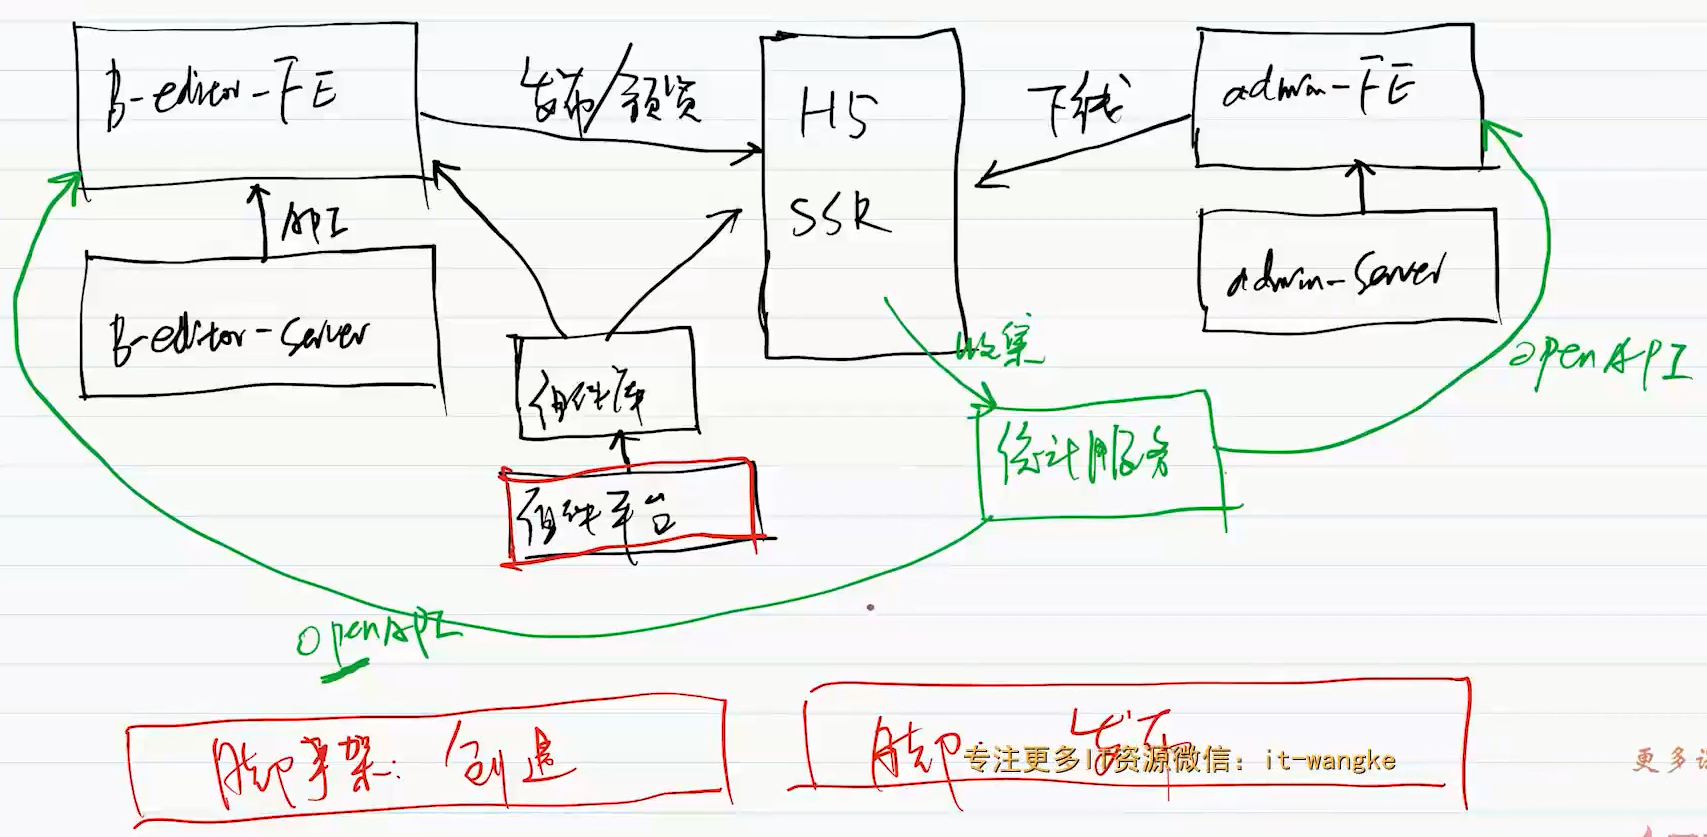 B-editor-FE
发布/预览
H5
SSR
下线
admin-FE
API
B-editor-server
admin-server
收集
组件库
统计服务
openAPI
组件平台
openAPI
脚手架: 创建
脚 发布
专注更多IT资源微信：it-wangke
更多